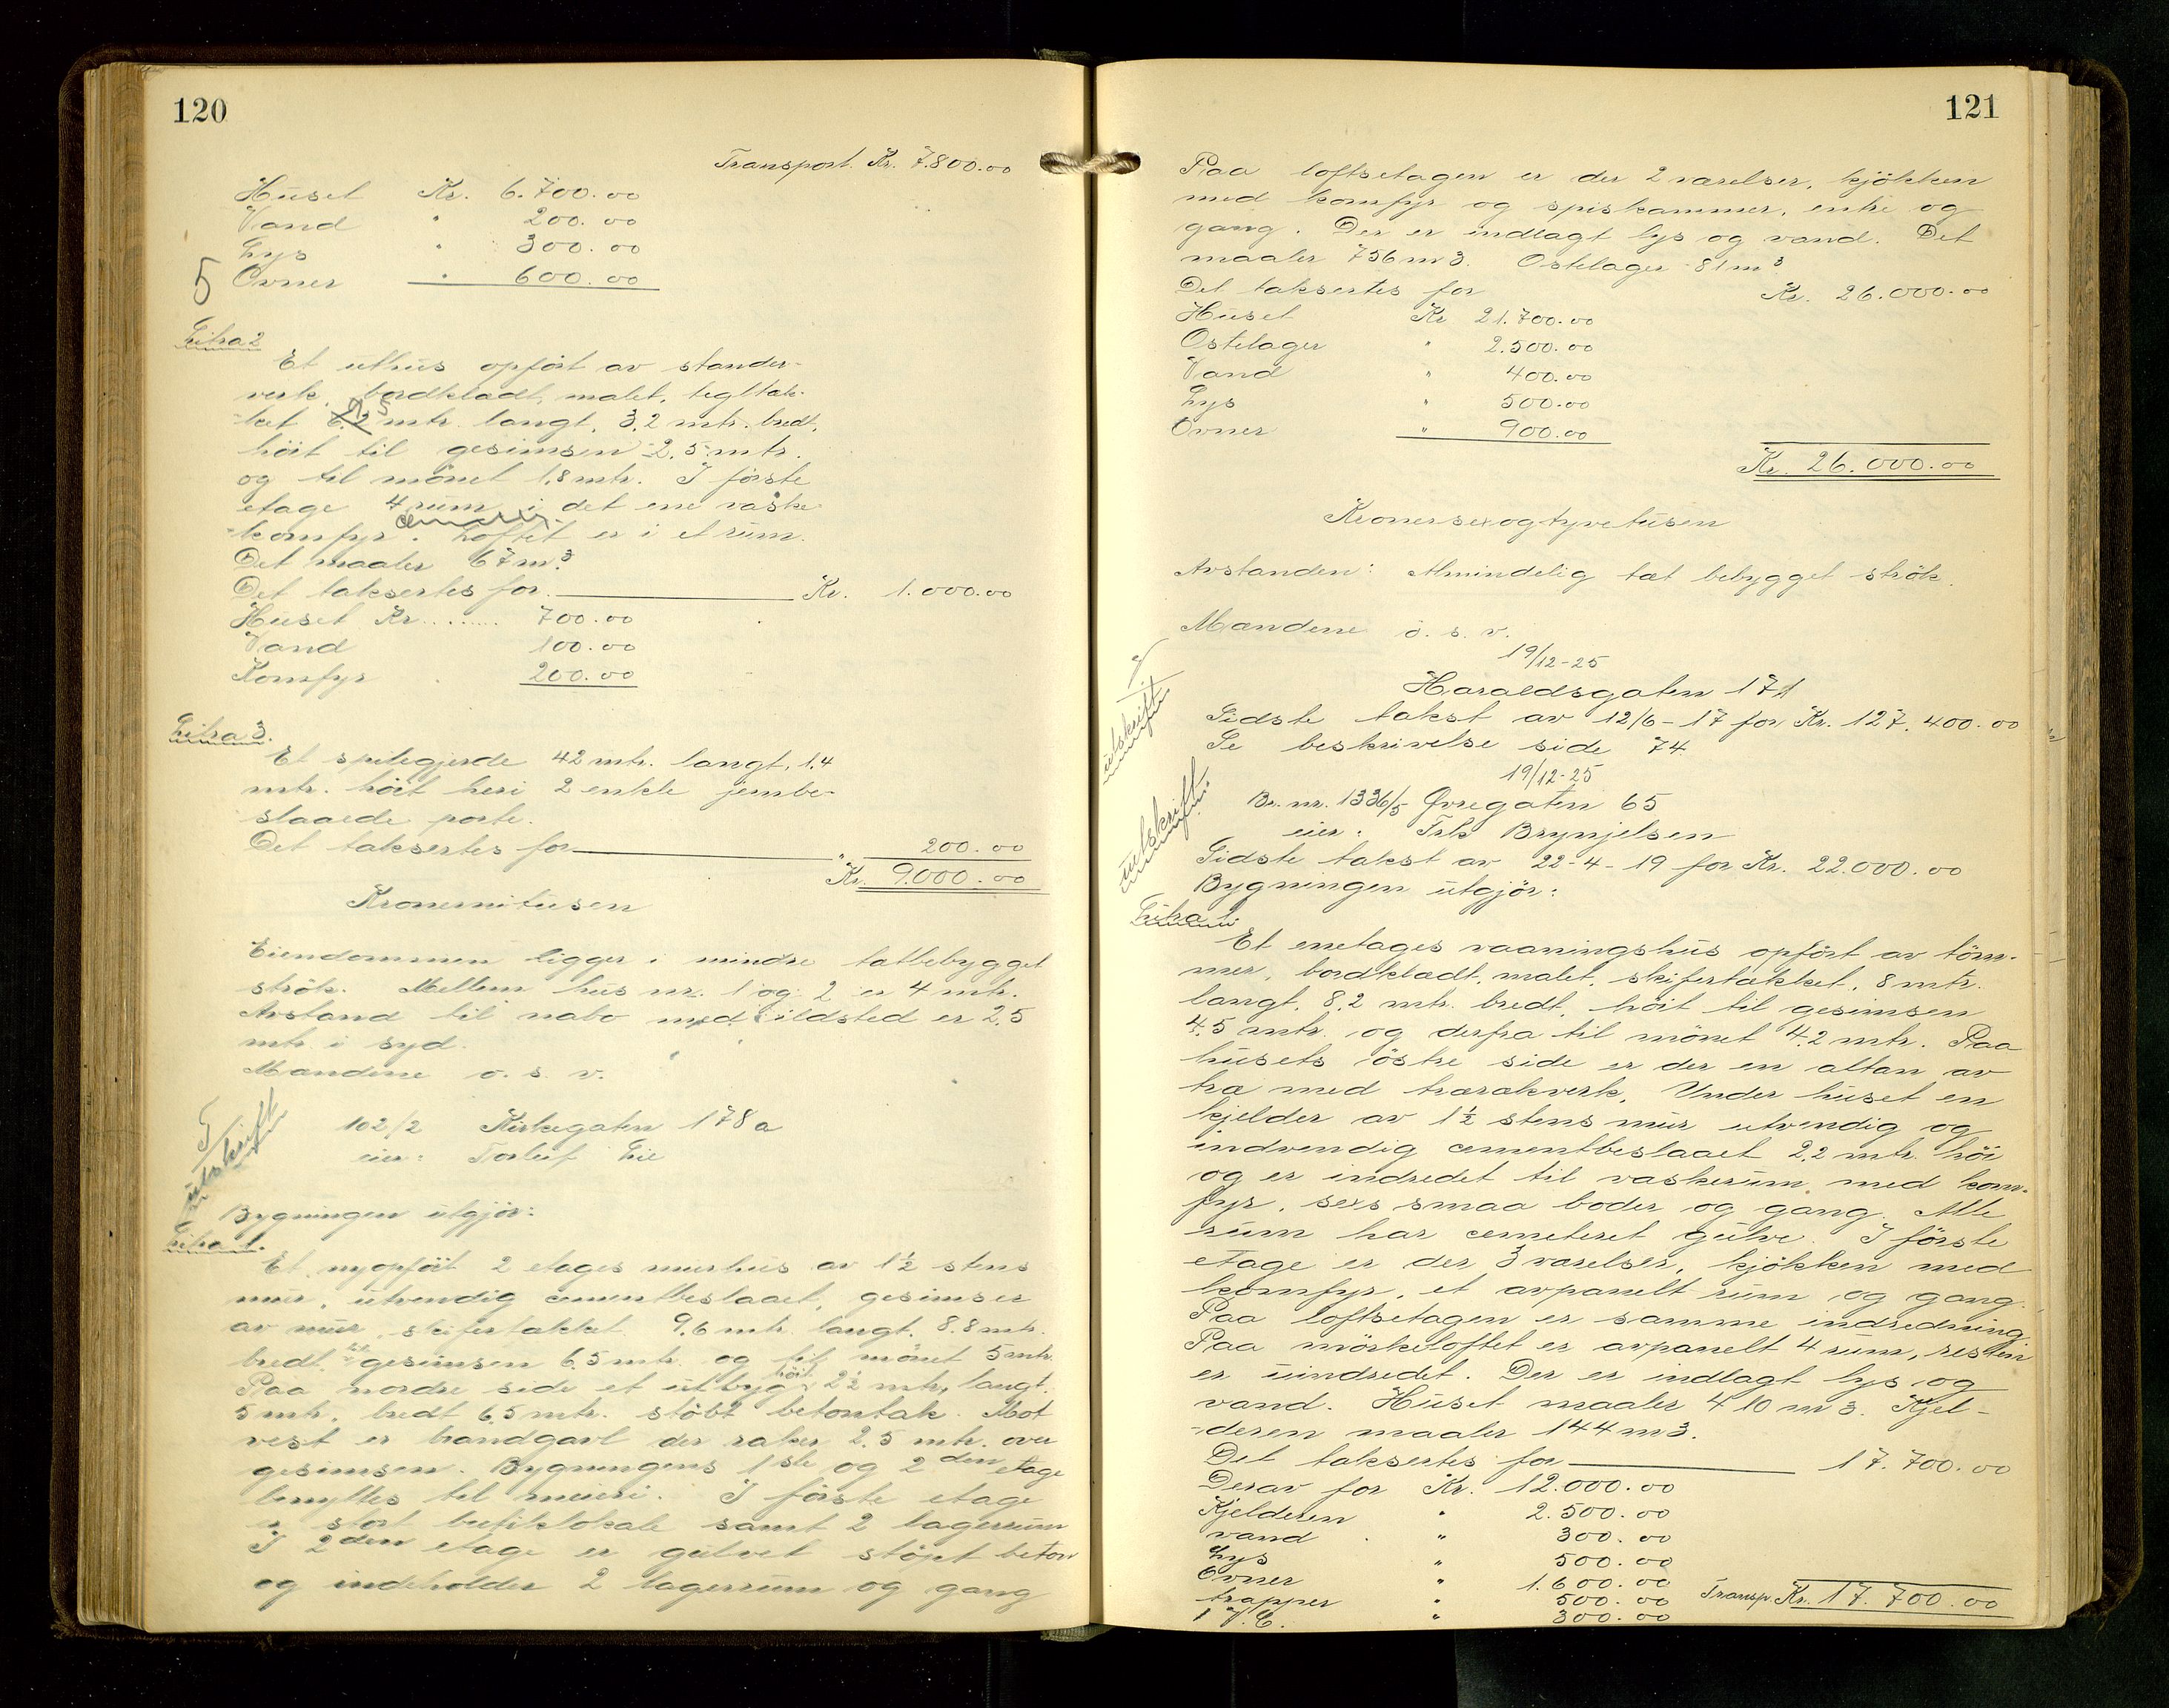 120
Transport Kr. 7.800.00
Huset Kr. 6.700.00
Vand " 200.00
Lys " 300.00
5 Ovner " 600.00
Litra 2
Et uthus opført av stander-
verk, bordklædt, malet, tegltæk-
ket mtr. langt, 3,2 mtr. bredt,
höit til gesimsen 2,5 mtr.
og til mönet 1,8 mtr. I förste
etage 4 rum i det ene vaske-
komfyr. Loftet er i et rum.
Det maaler 67 m3.
Det taksertes for Kr. 1.000.00
Huset Kr....... 700.00
Vand 100.00
Komfyr 200.00
Litra 3.
Et spilegjerde 42 mtr. langt, 1,4
mtr. höit heri 2 enkle jernbe-
slaaede porte.
Det taksertes for " 200.00
Kr. 9.000.00
Kronernitusen
Eiendommen ligger i mindre tætbebygget
strök. Mellem hus nr. 1 og 2 er 4 mtr.
Avstand til nabo med ildsted er 2,5
mtr. i syd.
Mændene o. s. v.
utskrift
102/2 Kirkegaten 178a
eier: Torleif Lie
Bygningen utgjör:
Litra 1.
Et nyopfört 2 etages murhus av 1½ stens
mur, utvendig cementbeslaaet, gesimser
av mur, skifertækket 9,6 mtr. langt, 8,8 mtr.
bredt, til gesimsen 6,5 mtr. og til mönet 5 mtr.
Paa nordre side et utbygg höit 2½ mtr, langt
5 mtr. bredt 6,5 mtr. stöbt betontak. Mot
vest er brandgavl der raker 2,5 mtr. over
gesimsen. Bygningens 1ste og 2den etage
benyttes til meieri. I förste etage
er stort butiklokale samt 2 lagerrum
I 2den etage er gulvet stöpt beton
og indeholder 2 lagerrum og gang
121
Paa loftsetagen er der 2 værelser, kjökken
med komfyr og spiskammer, entre og
gang. Der er indlagt lys og vand. Det
maaler 756 m3. Ostelager 81 m3
Det taksertes for Kr. 26.000.00
Huset Kr 21.700.00
Ostelager " 2.500.00
Vand " 400.00
Lys " 500.00
Ovner " 900.00
Kr. 26.000.00
Kronersexogtyvetusen
Avstanden: Almindelig tæt bebygget strök.
Mændene o. s. v.
19/12-25
utskrift
Haraldsgaten 171
Sidste takst av 12/6-17 for Kr. 127.400.00
Se beskrivelse side 74.
19/12-25
utskrift
Br. nr. 1336/5 Øvregaten 65
eier: Frk Brynjelsen
Sidste takst av 22-4-19 for Kr. 22.000.00
Bygningen utgjör:
Litra 1.
Et enetages vaaningshus opfört av töm-
mer, bordklædt, malet, skifertækket, 8 mtr.
langt, 8,2 mtr. bredt, höit til gesimsen
4,5 mtr. og derfra til mönet 4,2 mtr. Paa
husets östre side er der en altan av
træ med trærækverk. Under huset en
kjelder av 1½ stens mur utvendig og
indvendig cementbeslaaet 2,2 mtr. höi
og er indredet til vaskerum med kom-
fyr, sexs smaa boder og gang. Alle
rum har cemeteret gulve. I förste
etage er der 3 værelser, kjökken med
komfyr, et avpanelt rum og gang.
Paa loftsetagen er samme indredning
Paa mörkeloftet er avpanelt 4 rum, resten
er uindredet. Der er indlagt lys og
vand. Huset maaler 410 m3. Kjel-
-deren maaler 144 m3.
Det taksertes for 17.700.00
Derav for Kr. 12.000.00
Kjelderen " 2.500.00
vand " 300.00
Lys " 500.00
Ovner " 1.600.00
trapper " 500.00 Transp. Kr. 17.700.00
1 V.C. " 300.00